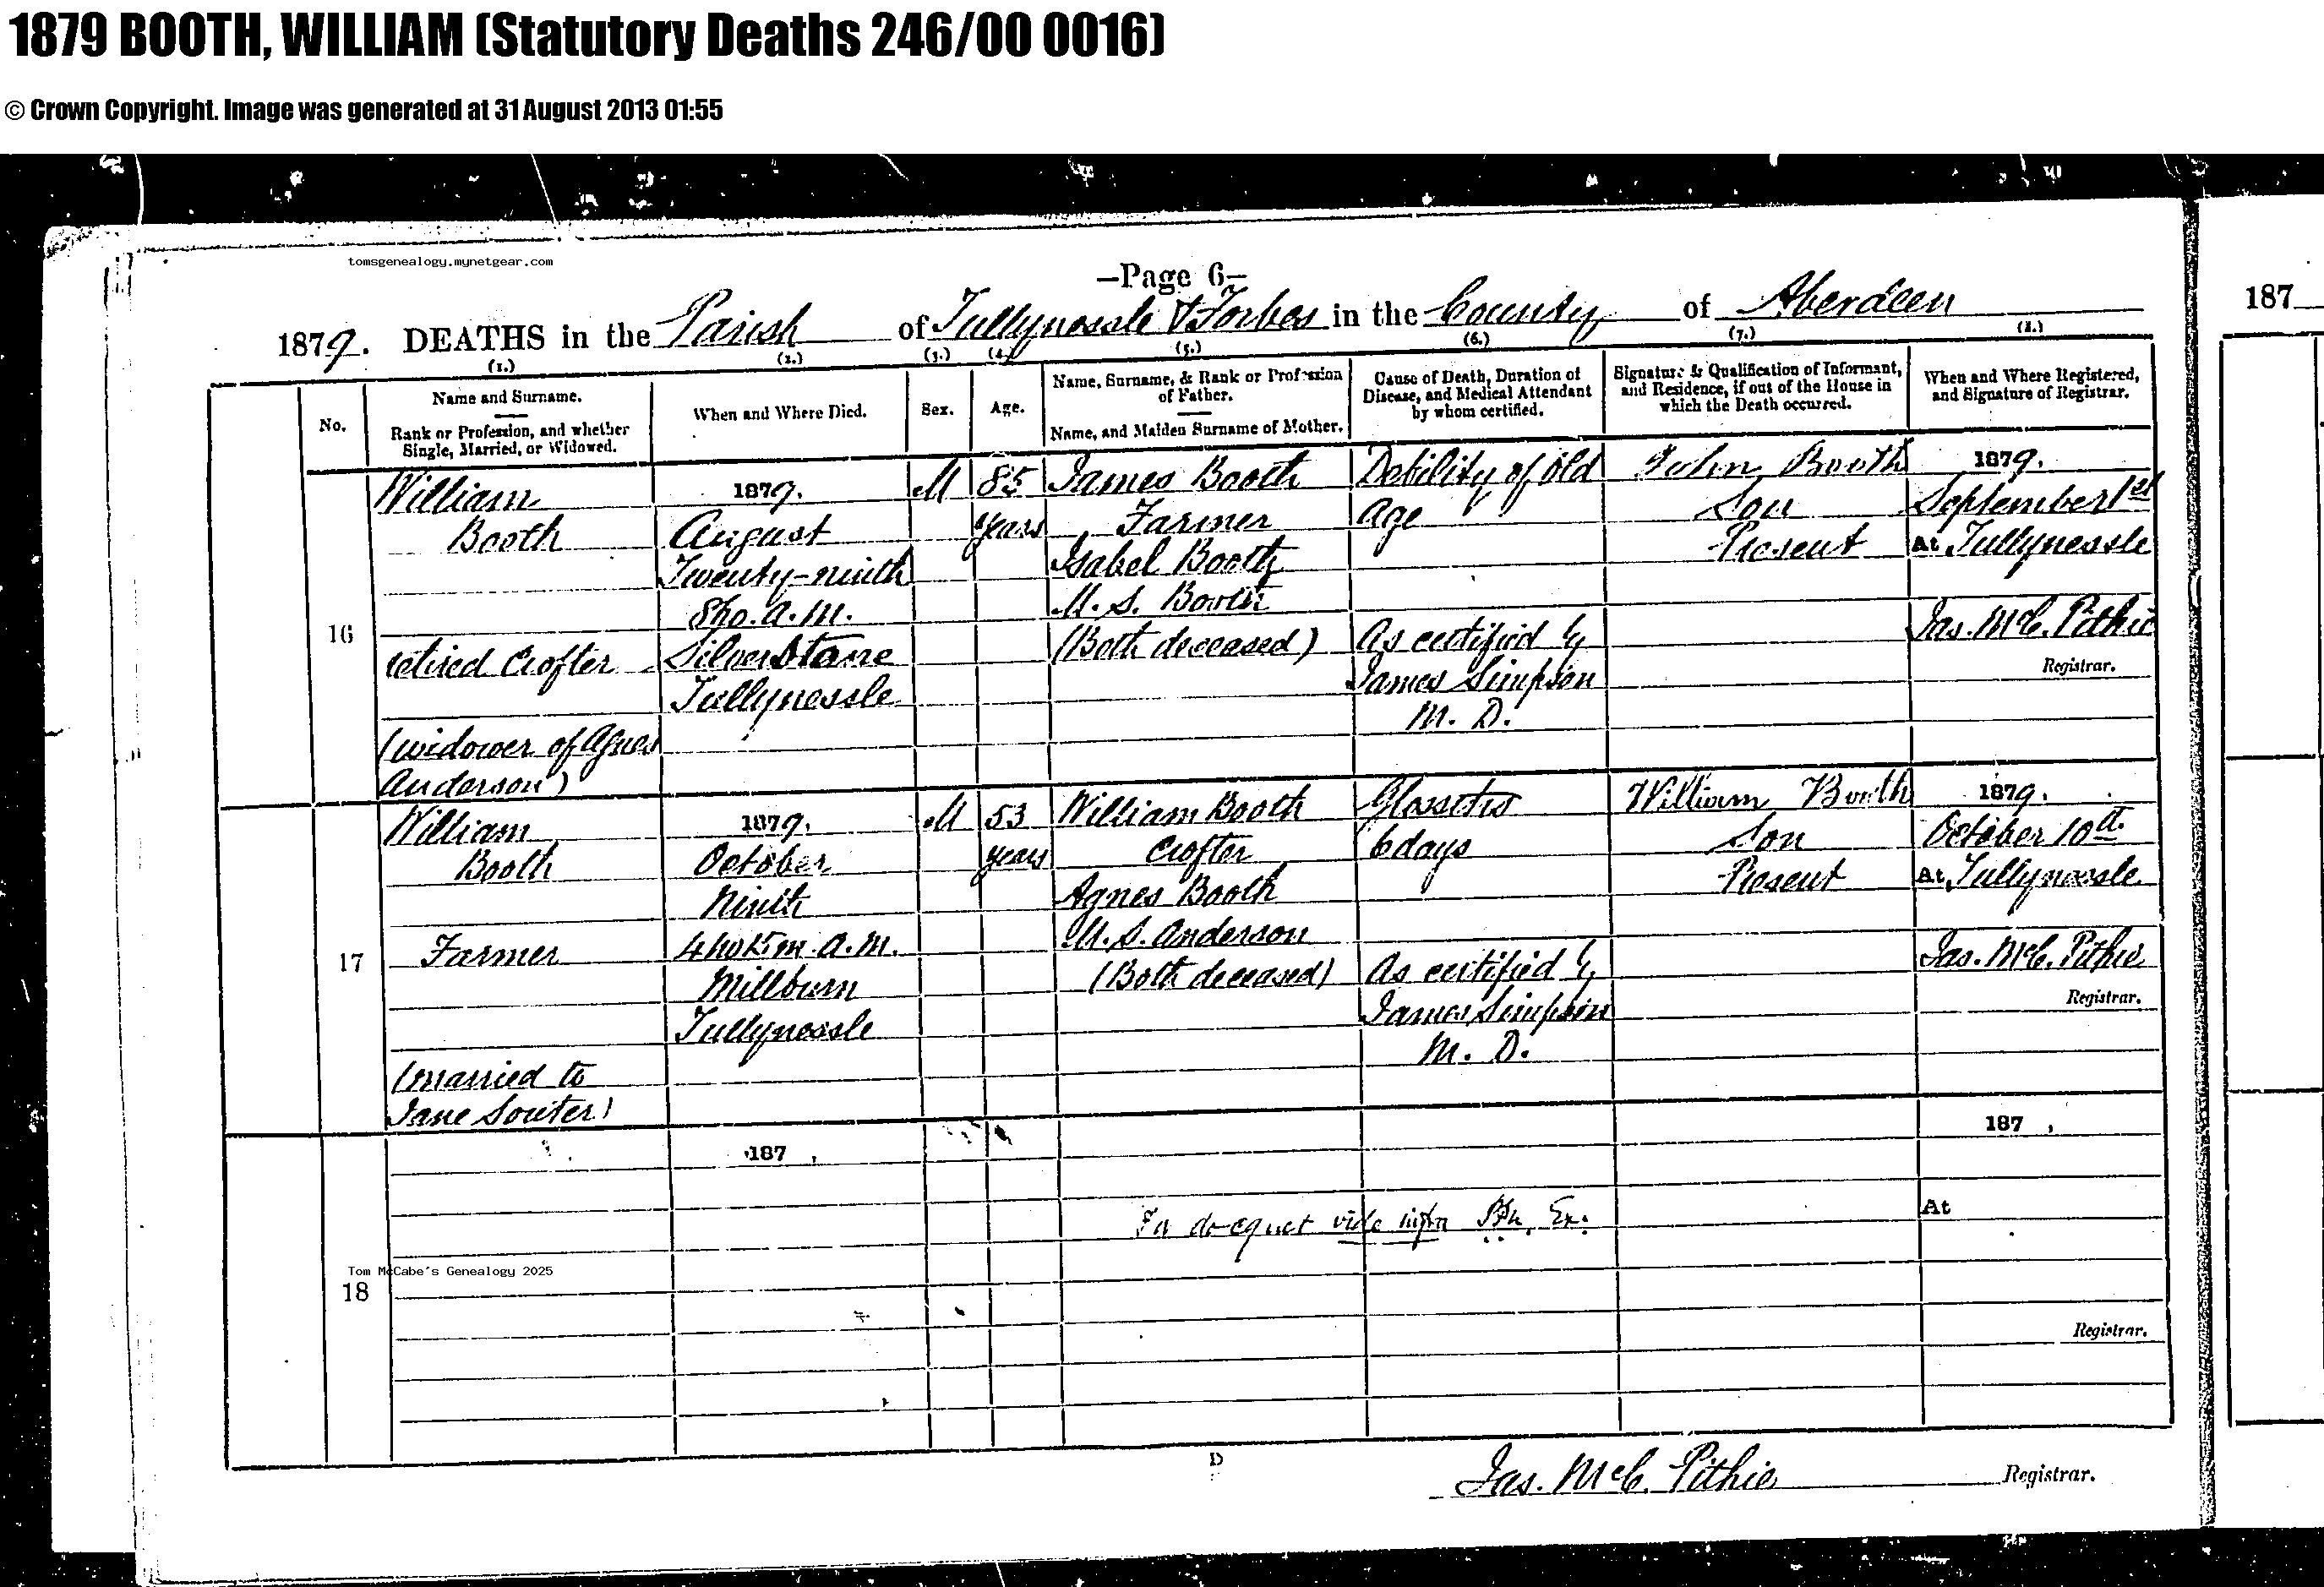 1879 BOOTH, WILLIAM (Statutory Deaths 246/00 0016)
© Crown Copyright. Image was generated at 31 August 2013 01:55
tomsgenealogy.mynetgear.com
—Page 6—
1879. DEATHS in the Parish of Tullynessle & Forbes in the County of Aberdeen
187
(1.) (2.) (3.) (4.) (5.) (6.) (7.) (8.)
No.
Name and Surname.
Rank or Profession, and whether
Single, Married, or Widowed.
When and Where Died.
Sex.
Age.
Name, Surname, & Rank or Profession
of Father.
Name, and Maiden Surname of Mother.
Cause of Death, Duration of
Disease, and Medical Attendant
by whom certified.
Signature & Qualification of Informant,
and Residence, if out of the House in
which the Death occurred.
When and Where Registered,
and Signature of Registrar.
16
William
Booth
retired Crofter
(widower of Agnes
Anderson)
1879.
August
Twenty-ninth
8ho. A.M.
Silverstane
Tullynessle
M
85
years
James Booth
Farmer
Isabel Booth
M.S. Booth
(Both deceased)
Debility of Old
Age
As certified by
James Simpson
M. D.
John Booth
Son
Present
1879.
September 1st
At Tullynessle
Jas. McC. Pithie
Registrar.
17
William
Booth
Farmer
(married to
Jane Souter)
1879.
October
Ninth
4ho 15m. A.M.
Millburn
Tullynessle
M
53
years
William Booth
Crofter
Agnes Booth
M.S. Anderson
(Both deceased)
Glossitis
6 days
As certified by
James Simpson
M. D.
William Booth
Son
Present
1879.
October 10th
At Tullynessle
Jas. McC. Pithie
Registrar.
18
187 .
187 .
vide infra Ex.
At
Tom McCabe's Genealogy 2025
Registrar.
D
Jas. McC. Pithie Registrar.